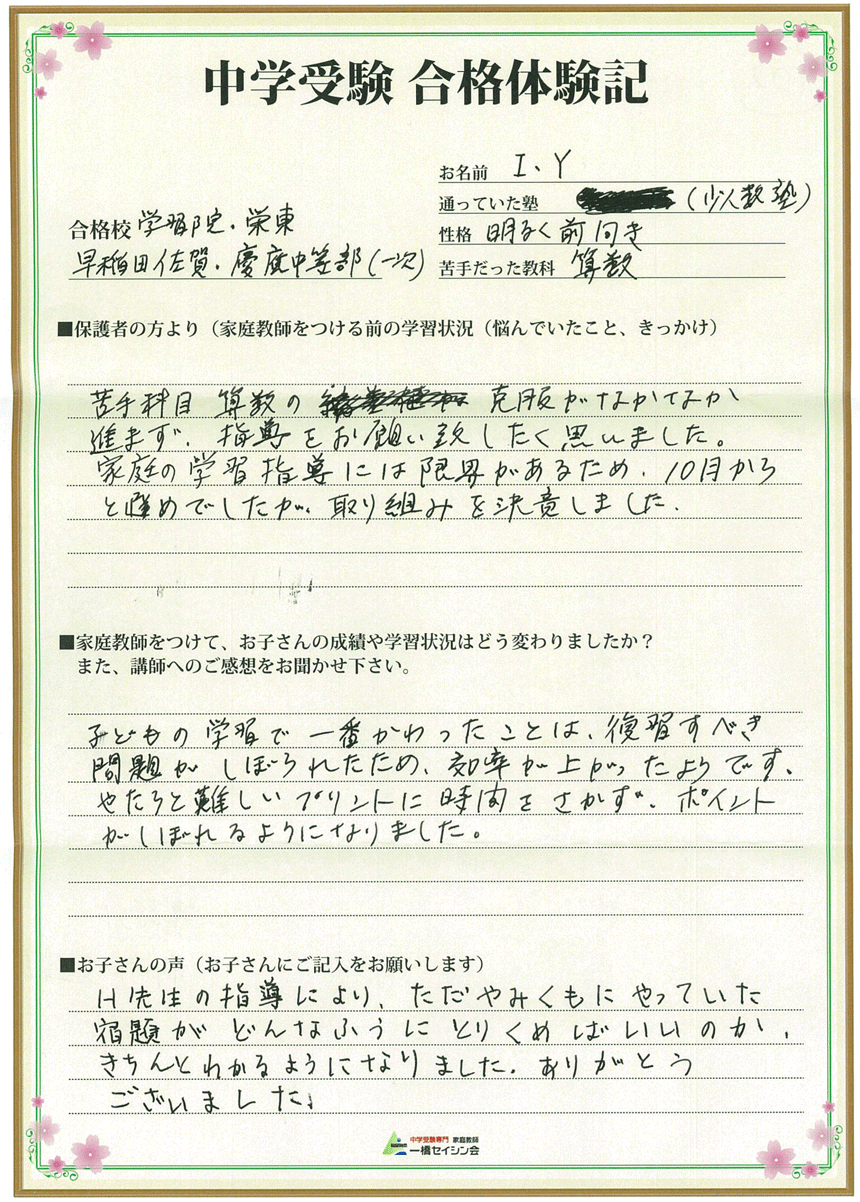 中学受験 合格体験記
お名前 I、Y
通っていた塾 (少人数塾)
合格校 学習院・栄東
性格 明るく前向き
早稲田佐賀・慶應中等部(一次)
苦手だった教科 算数
■保護者の方より（家庭教師をつける前の学習状況（悩んでいたこと、きっかけ）
苦手科目 算数の 克服がなかなか
進まず、指導をお願い致したく思いました。
家庭の学習指導には限界があるため、10月から
と遅めでしたが、取り組みを決意しました。
■家庭教師をつけて、お子さんの成績や学習状況はどう変わりましたか？
また、講師へのご感想をお聞かせ下さい。
子どもの学習で一番かわったことは、復習すべき
問題がしぼられたため、効率が上がったようです。
やたらと難しいプリントに時間をさかず、ポイント
がしぼれるようになりました。
■お子さんの声（お子さんにご記入をお願いします）
H先生の指導により、ただやみくもにやっていた
宿題がどんなふうにとりくめばいいのか、
きちんとわかるようになりました。ありがとう
ございました。
中学受験専門 家庭教師
一橋セイシン会